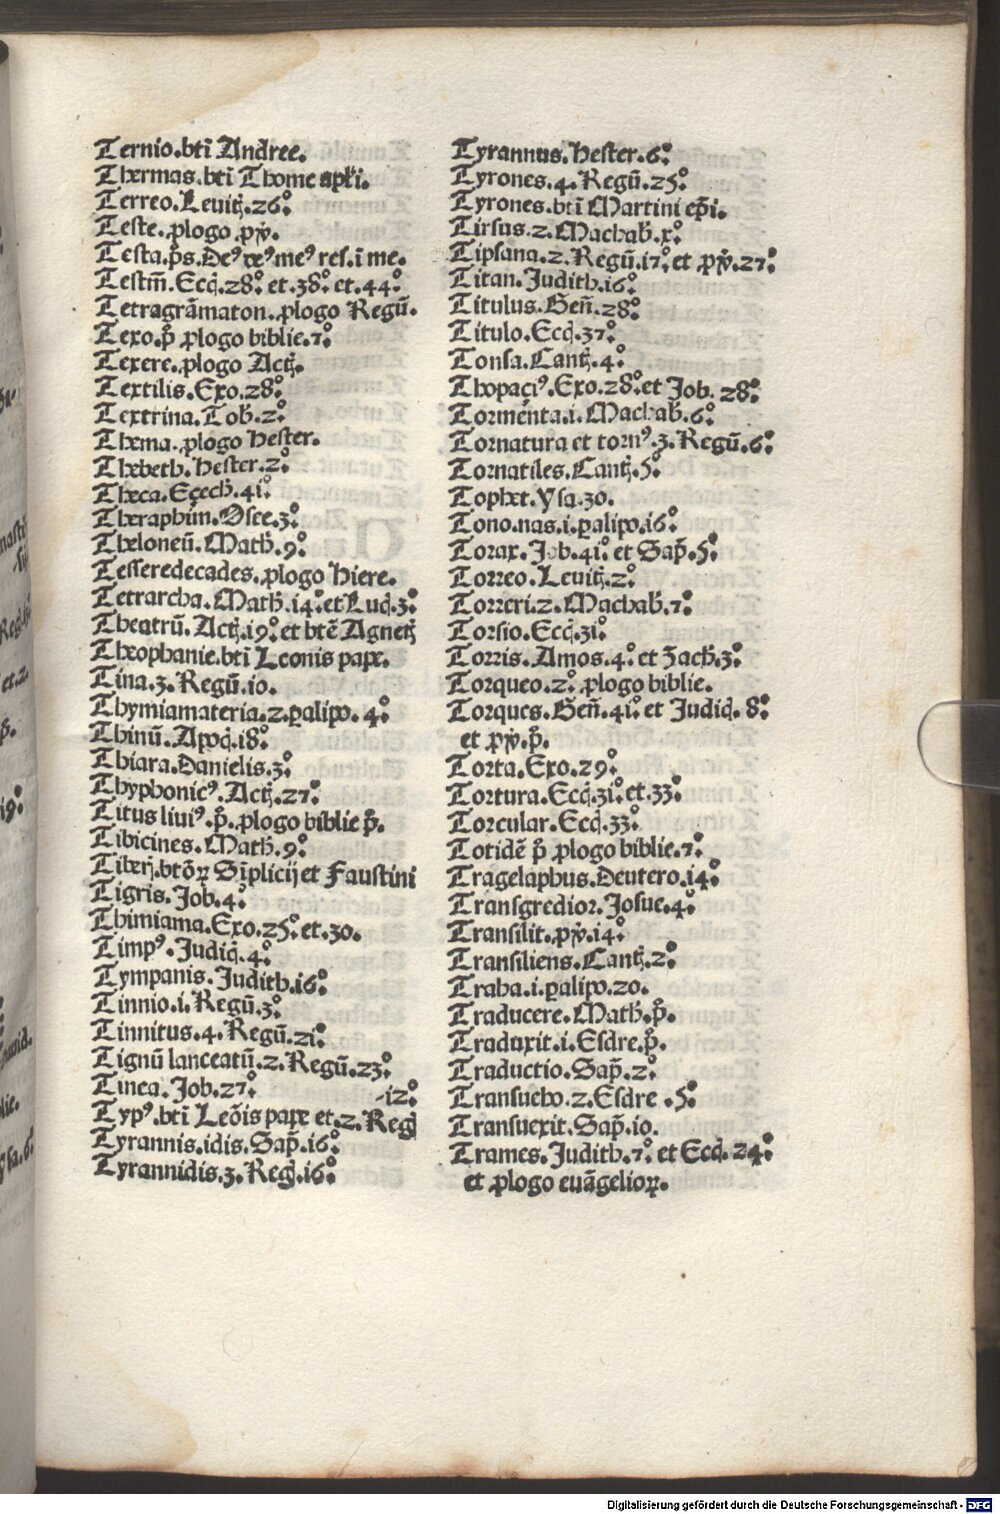 Ternio.btī Andree.
Thermas.btī Thome apłi.
Terreo.Leuitꝫ.26°.
Teste.ꝓlogo ꝓꝟ.
Testa.p̄s.De⁹ de⁹ me⁹ res.ī me.
Testm̄.Ecq̄.28°. et.38°. et.44°.
Tetragrāmaton.ꝓlogo Regū.
Texo.p̄ ꝓlogo biblie.7°.
Texere.ꝓlogo Actꝫ.
Textilis.Exo.28°.
Textrina.Tob̄.2°.
Thema.ꝓlogo Hester.
Thebeth.Hester.2°.
Theca.Eçech̄.41°.
Theraphim.Osee.3°.
Theloneū.Math̄.9°.
Tesseredecades.ꝓlogo Hiere.
Tetrarcha.Math̄.14°.et Luc̄.3°.
Theatrū.Actꝫ.19°. et btē Agnetꝫ
Theophanie.btī Leonis pape.
Tina.3.Regū.10.
Thymiamateria.2.ꝑalipo.4°.
Thinū.Apoc̄.18°.
Thiara.Danielis.3°.
Thyphonic⁹.Actꝫ.27°.
Titus liui⁹.p̄.ꝓlogo biblie p̄.
Tibicines.Math̄.9°.
Tiberij.btōꝝ Sīplicij et Faustini
Tigris.Job.4°.
Thimiama.Exo.25°. et.30.
Timp⁹.Judic̄.4°.
Tympanis.Judith.16°.
Tinnio.i.Regū.3°.
Tinnitus.4.Regū.21°.
Tignū lanceatū.2.Regū.23°.
Tinea.Job.27°. -12°.
Typ⁹.btī Leōis pape et.2.Reḡ
Tyrannis.idis.Sap̄.16°.
Tyrannidis.3.Reḡ.16°.
Tyrannus.Hester.6°.
Tyrones.4.Regū.25°.
Tyrones.btī Martini ep̄i.
Tirsus.2.Machab̄.x°.
Tipsana.2.Regū.17°. et ꝓꝟ.27°.
Titan.Judith.16°.
Titulus.Gen̄.28°.
Titulo.Ecq̄.37°.
Tonsa.Cantꝫ.4°.
Thopaçi⁹.Exo.28°.et Job.28°.
Tormenta.i.Machab̄.6°.
Tornatura et torn⁹.3.Regū.6°.
Tornatiles.Cantꝫ.5°.
Tophet.Ysa.30.
Tono.nas.i.ꝑalipo.16°.
Torax.Job.41°. et Sap̄.5°.
Torreo.Leuitꝫ.2°.
Torreri.2.Machab̄.7°.
Torsio.Ecq̄.31°.
Torris.Amos.4°. et Zach̄.3°.
Torqueo.2°.ꝓlogo biblie.
Torques.Gen̄.41°. et Judic̄.8°.
et ꝓꝟ.p̄.
Torta.Exo.29°.
Tortura.Ecq̄.31°.et.33°.
Torcular.Ecq̄.33°.
Totidē p̄ ꝓlogo biblie.7°.
Tragelaphus.Deutero.14°.
Transgredior.Josue.4°.
Transilit.ꝓꝟ.14°.
Transiliens.Cantꝫ.2°.
Traha.i.ꝑalipo.20.
Traducere.Math̄.p̄.
Traduxit.i.Esdre.p̄.
Traductio.Sap̄.2°.
Transueho.2.Esdre.5°.
Transuexit.Sap̄.10.
Trames.Judith.7°. et Ecq̄.24°.
et ꝓlogo euāgelioꝝ.
Digitalisierung gefördert durch die Deutsche Forschungsgemeinschaft - DFG